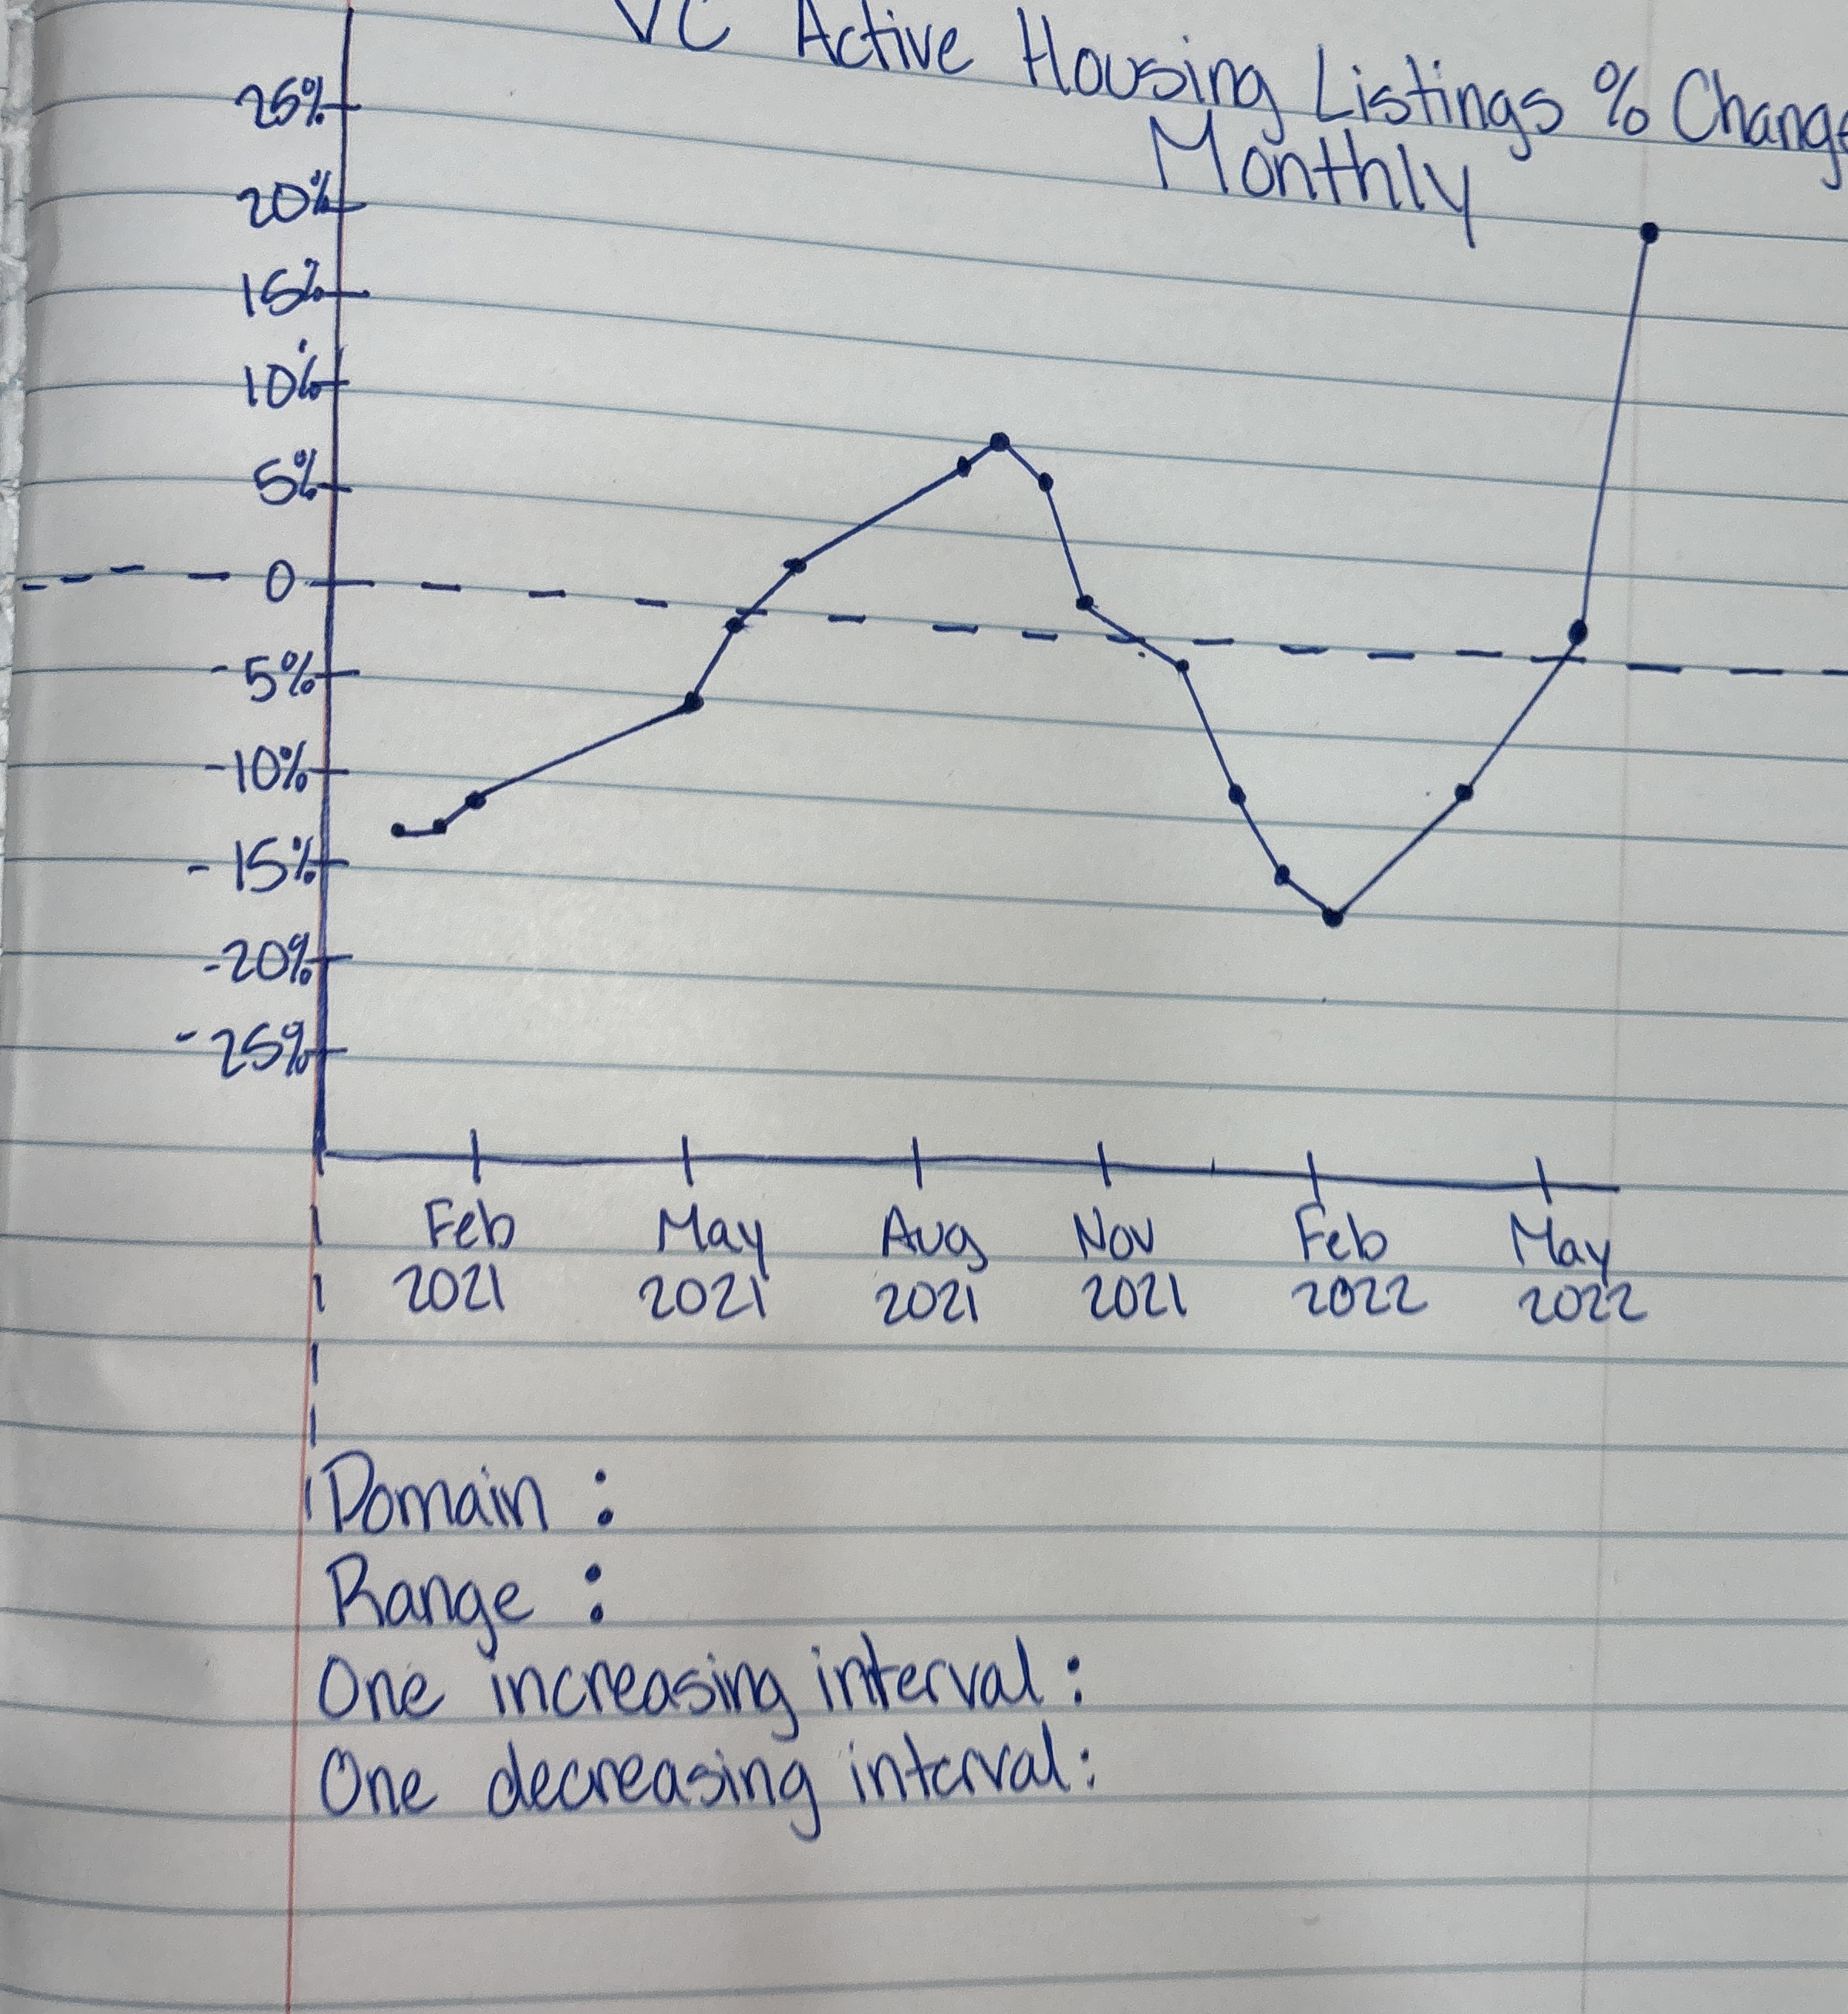 VC Active Housing Listings % Change
Monthly
25%
20%
15%
10%
5%
0
-5%
-10%
-15%
-20%
-25%
Feb May Aug Nov Feb May
2021 2021 2021 2021 2022 2022
Domain :
Range :
One increasing interval :
One decreasing interval :